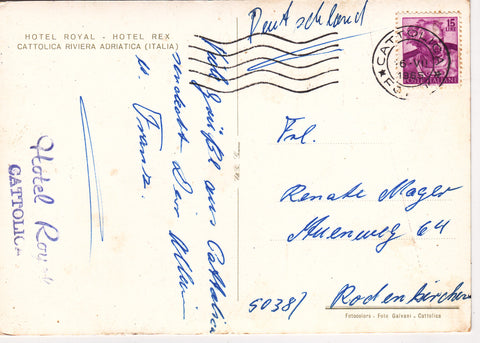 HOTEL ROYAL - HOTEL REX
CATTOLICA RIVIERA ADRIATICA (ITALIA)
Deutschland
15
LIRE
POSTE ITALIANE
CATTOLICA
Viele Grüße aus Cattolica
sendet Dir
u. Franz.
Hotel Royal
CATTOLICA
Frl.
Renate Mager
64
5038/ Rodenkirchen
Fotocolors - Foto Galvani - Cattolica